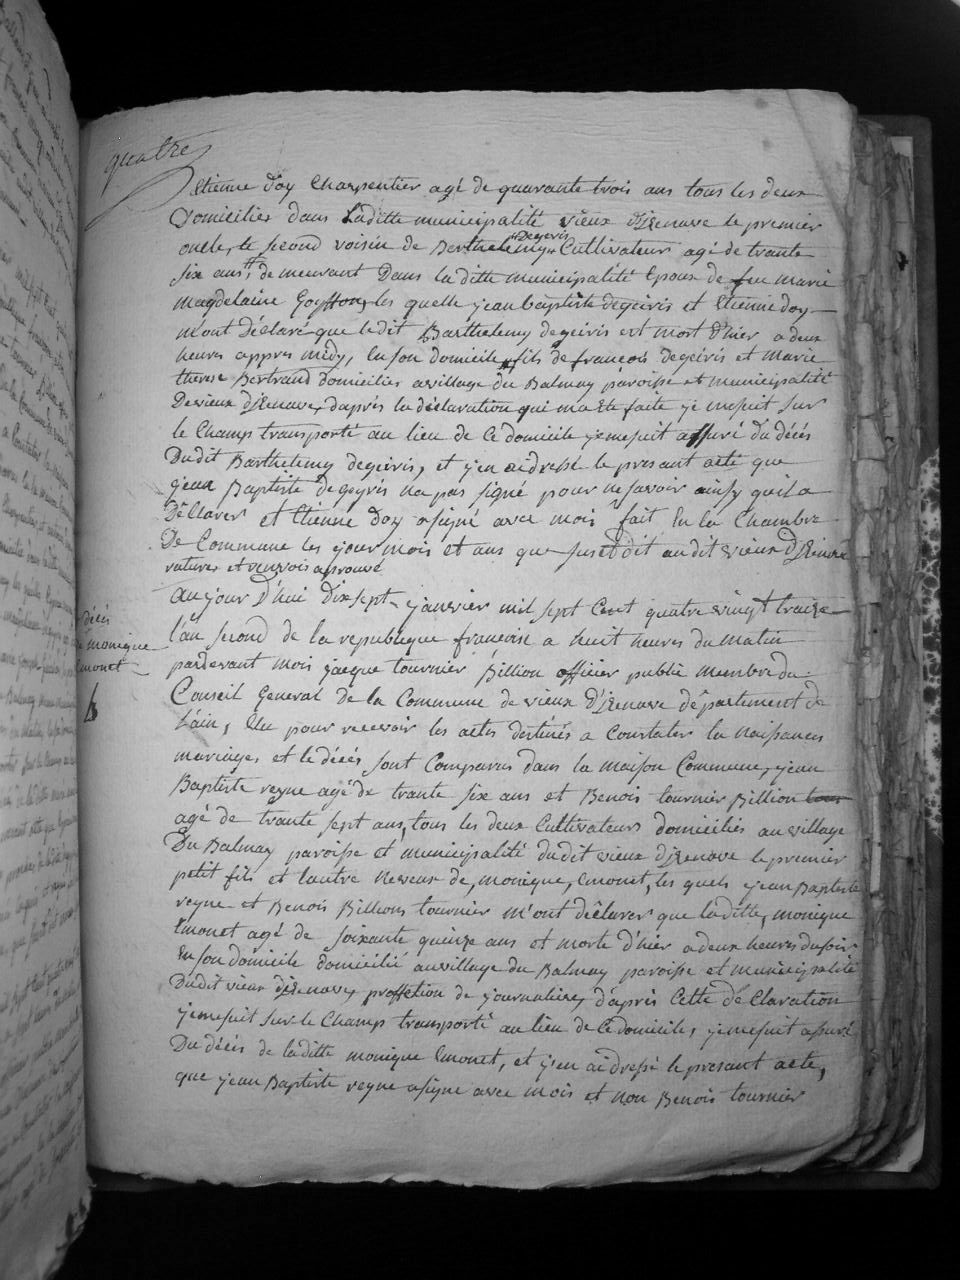 quatre
Etienne doy Charpentier agé de quarante trois ans tous les deux
Domicilies dans Laditte municipalité vieux d'izenave le premier
oncle, le second voisin de Berthelemy Degeiris Cultivateur agé de trante
six ans, de meurant Dans la ditte municipalité Epoux de feu marie
magdelaine Goyffon, les quelle jean baptiste degeiris et Etienne doy
m'ont Déclaré que ledit Barthelemy degeiris est mort d'hier a deux
heures appres midy, en son domicile fils de francois degeiris et marie
therese Bertrand domicilies a village du Balmay paroisse et municipalité
De vieux d'izenave, daprés la déclaration qui ma Eté faite je mesuit sur
le Champ transporté au lieu de Ce domicile je mesuit assuré du décés
Dudit Barthelemy degeiris, et j'en ai dressé le presant acte que
jean Baptiste degeyris na pas signé pour ne savoir ainsy quil a
Déclarer et Etienne doy a signé avec mois fait En la Chambre
De Commune les jour mois et ans que susetdit audit vieux D'izenave
ratures et renvois aprouvé
Au jour D'hui dix sept janvier mil sept Cent quatre vingt traize
l'an second de la republique francoise a huit heures du matin
décés
de monique
Emonet
pardevant mois jacque tournier Billion officier public membre du
Conseil General de la Commune de vieux d'izenave département de
L'ain, Elu pour recevoir les actes destinés a Constater la Naissances
mariages et le décés sont Comparus dans la maison Commune, jean
Baptiste reyne agé de trante six ans et Benois tournier Billion tous
agé de trante sept ans, tous les deux Cultivateurs domiciliés au village
Du Balmay paroisse et municipalité dudit vieux d'izenave le premier
petit fils et lautre neveux de, monique, Emonet, les quels jean Baptiste
reyne et Benois Billions tournier m'ont déclarer que laditte, monique
Emonet agé de soixante quinze ans et morte d'hier a deux heures du soir
En son domicile domicilié au village du Balmay paroisse et municipalité
Dudit vieux d'izenave, proffetion de journaliere, d'aprés Cette déClaration
je mesuit sur le Champ transporté au lieu de Ce domiciles, je mesuit assuré
Du décés de laditte monique Emonet, et j'en ai dressé le presant acte,
que jean Baptiste reyne a signe avec mois et non Benois tournier